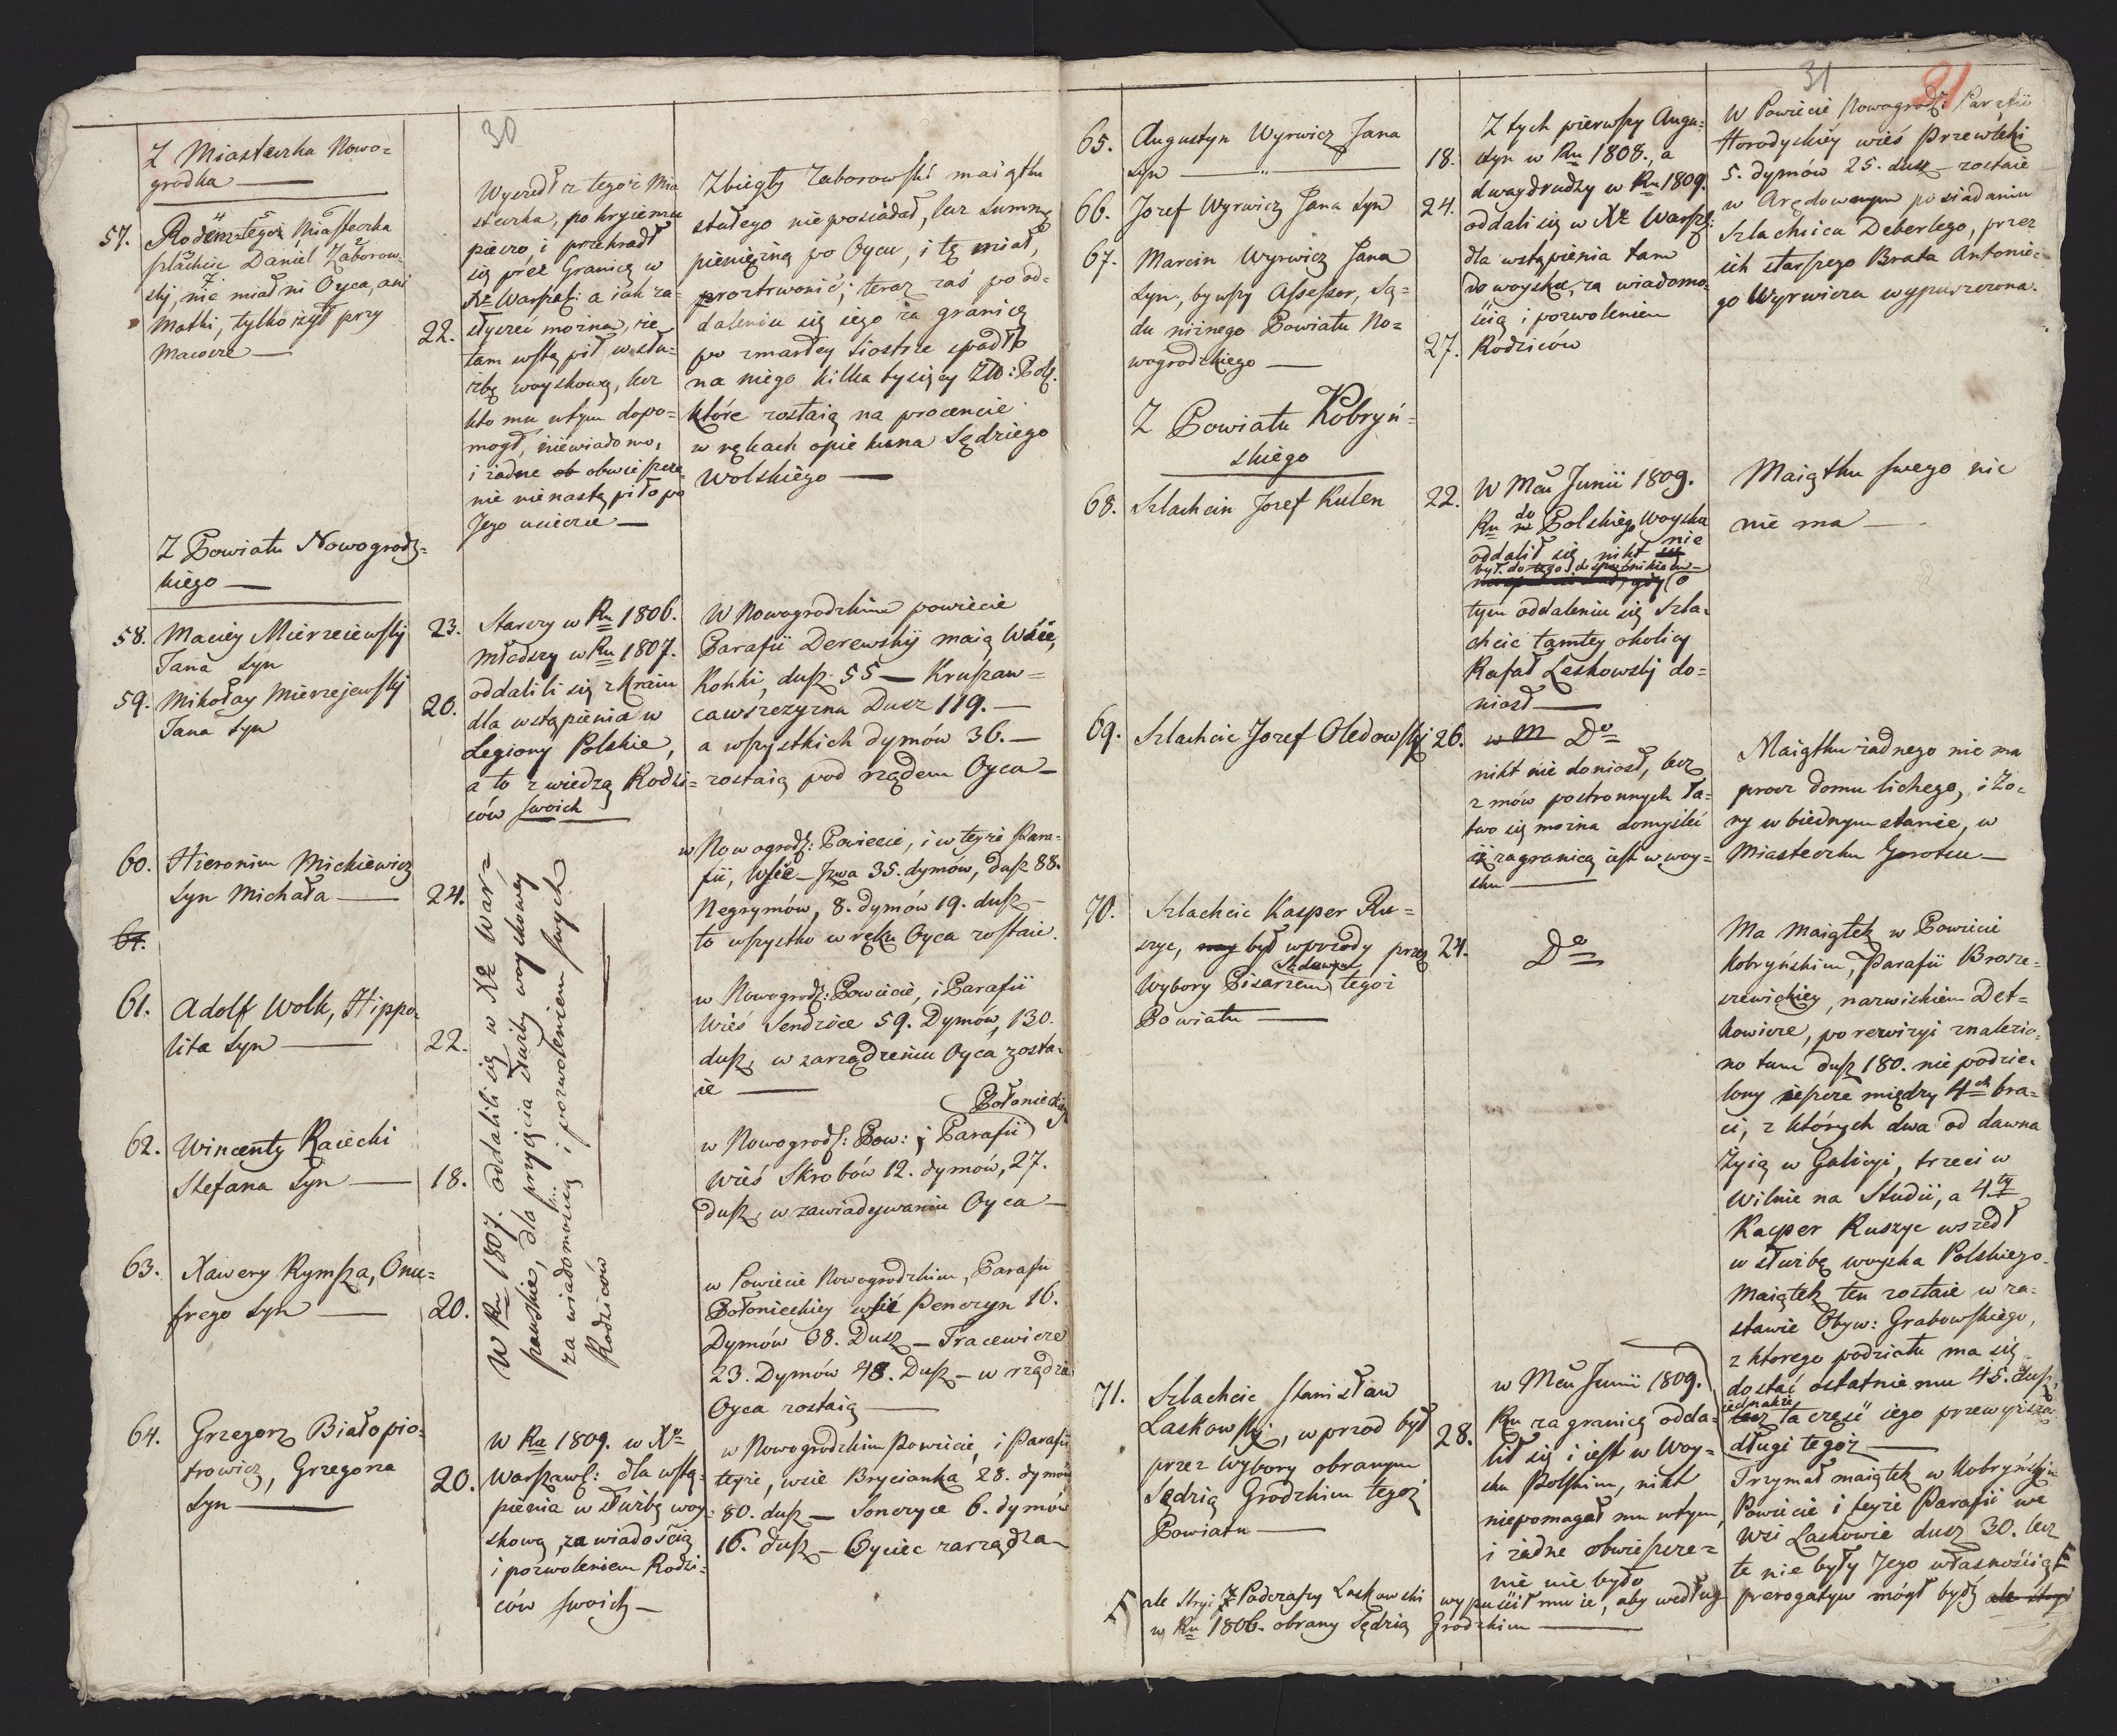 30
Z Miasteczka Nowo=
grodka —
57. Rodem z tegoż Miasteczka
szlachcic Daniel Zaborow-
ski, nie miał ni Oyca, ani
Matki, tylko żył przy
Macosze —
22.
Wyszedł z tegoż Mia
steczka, po kryiemu
pieszo, i przekradł
się przez Granicę w
Xę Warszaw: a iak za-
słyszeć można, że
tam wstąpił w słu-
żbę woyskową, lecz
kto mu w tym dopo=
mogł, niewiadomo,
i żadne ob obwieszcze
nie nie nastąpiło po
Jego ucieczce —
Zbiegły Zaborowski maiątku
stałego nie posiadał, lecz summę
pieniężną po Oycu, i tę miał,
proztrwonić; teraz zaś po od-
daleniu się iego za granicę
po zmarłey Siostrze spadło
na niego kilka tysięcy Złł: Pol:
które zostaią na procencie
w rękach opiekuna Sędziego
Wolskiego —
Z Powiatu Nowogrodz=
kiego —
58. Maciey Mierzeiewski
Jana Syn
23.
59. Mikołay Mierzejewski
Jana Syn
20.
Starszy w Ru 1806.
Młodszy w Ru 1807.
oddalili się z kraiu
dla wstąpienia w
Legiony Polskie,
a to z wiedzą Rodzi=
ców swoich
W Nowogrodzkim powiecie
Parafii Derewskiy maią Wsie,
Kohki, dusz 55 — Kruszaw=
cawszczyzna Dusz 119. —
a wszystkich dymów 36. —
zostaią pod rządem Oyca —
60. Hieronim Mickiewicz
Syn Michała —
24.
61.
w Nowogrodz: Powiecie, i w teyże Para-
fii, Wsie — Izwa 35. dymów, dusz 88.
Negrymów, 8. dymów 19. dusz —
to wszystko w ręku Oyca zostaie.
61. Adolf Wolk, Hippo-
lita Syn —
22.
w Nowogrodz: Powiecie, i Parafii
Wieś Sendzice 59. Dymów, 130.
dusz, w zarządzeniu Oyca zosta-
ie —
62. Wincenty Raiecki
Stefana Syn —
18.
Połonieckiey
w Nowogrodz: Pow: i Parafii
Wieś Skrobów 12. dymów, 27.
dusz, w zawiadywaniu Oyca —
63. Xawery Rymsza, Onu=
frego Syn —
20.
W Ru 1807. oddalili się w Xę War=
szawskie, dla przyięcia służby woyskowey
za wiadomością i pozwoleniem swych
Rodziców
w Powiecie Nowogrodzkim, Parafii
Połonieckiey wsie Penczyn 16.
Dymów 38. Dusz — Tracewicze
23. Dymów 48. Dusz — w rządzie
Oyca zostaią —
64. Grzegorz Białopio-
trowicz, Grzegorza
Syn —
20.
W Ru 1809. w Xę
Warszaws: dla wstą-
pienia w służbę woy-
skową, za wiadością
i pozwoleniem Rodzi-
ców swoich —
w Nowogrodzkim Powiecie, i Parafii
teyże, wsie Brycianka, 28. dymów
80. dusz — Sonczyce 6. dymów
16. dusz — Oyciec zarządza
31
65. Augustyn Wyrwicz Jana
Syn —
18.
66. Jozef Wyrwicz Jana Syn
24.
67. Marcin Wyrwicz Jana
Syn, bywszy Assessor, Są=
du niżnego Powiatu No=
wogrodzkiego —
27.
Z tych pierwszy Augu=
styn w Ru 1808., a
dwaydrudzy w Ru 1809.
oddali się w Xę Warsz:
dla wstąpienia tam
do woyska, za wiadomo-
ścią i pozwoleniem
Rodziców
W Powiecie Nowogrodz: Parafii
Horodyskiey wieś Przewłoki
5. dymów 25. dusz — zostaie
w Arędownym posiadaniu
Szlachcica Deberlego, przez
ich starszego Brata Antonie-
go Wyrwicza wypuszczona.
Z Powiatu Kobryń=
skiego
68. Szlachcic Jozef Kulen
22.
W Mcu Junii 1809.
Ru do Polskiego Woyska
oddalił się, nikt nie
był do tego dopomnikiem —
o
tym oddaleniu się Szla-
chcic tamtey okolicy
Rafał Leskowski do=
niosł —
Maiątku swego nic
nie ma —
69. Szlachcic Jozef Oledowski
26.
w M Do
nikt nie doniosł, lecz
z mów postronnych ła-
two się można domyślić
iż zagranicą iest w woy-
sku —
Maiątku żadnego nie ma
procz domu lichego, i Żo-
ny w biednym stanie, w
Miasteczku Horotcu —
70. Szlachcic Kasper Ru=
szyc, był wprzody przez
Wybory Pisarzem Sądowym tegoż
Powiatu —
24.
Do
Ma Maiątek w Powiecie
Kobryńskim, Parafii Brosze-
szewickiey, nazwiskiem Det=
kowicze, po rewizyi znalezio-
no tam dusz 180. nie podzie-
lony ieszcze między 4ch bra-
ci, z których dwa od dawna
Żyią w Galicyi, trzeci w
Wilnie na Studii, a 4ty
Kasper Ruszyc wszedł
w służbę woyska Polskiego.
Maiątek ten zostaie w za-
stawie Obyw: Grabowskiego,
z którego podziału ma się
dostać ostatniemu 45. dusz,
iednakże
lecz ta część iego przewyższa
długi tegoż —
71. Szlachcic Stanisław
Laskowski, w przod był
przez Wybory obranym
Sędzią Grodzkim tegoż
Powiatu —
28.
w Mcu Junii 1809.
Ru za granicę odda-
lił się i iest w Woy=
sku Polskim, nikt
niepomagał mu w tym,
i żadne obwieszcze=
nie nie było
Trzymał maiątek w Kobryńskim
Powiecie i teyże Parafii we
Wsi Laskowie dusz 30. lecz
te nie były Jego własnością
ale Stryi Podczaszy Laskowski wypuścił mu ie, aby według prerogatyw mógł bydź ale stryi
w Ru 1806. obrany Sędzią Grodzkim —